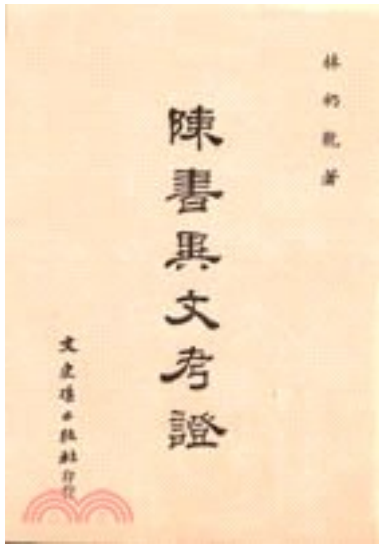 林礽乾著
陳書異文考證
文史哲出版社印行